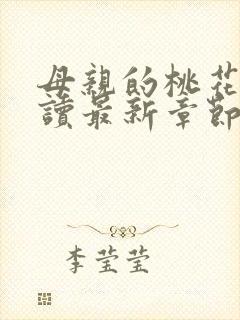 母親的桃花
讀最新章節
李莹莹